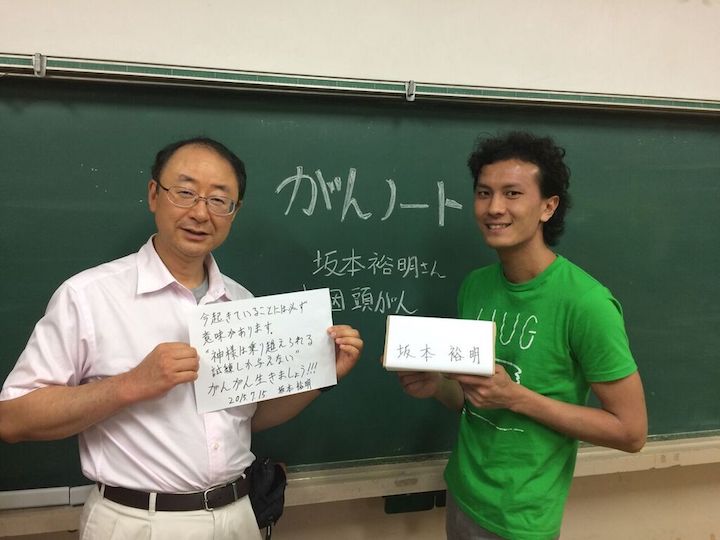 がんノート
坂本裕明さん
咽頭がん
今起きていることには必ず
意味があります。
"神様は乗り越えられる
試練しか与えない"
がんがん生きましょう!!!
2015.7.15 坂本 裕明
坂本 裕明
HUG